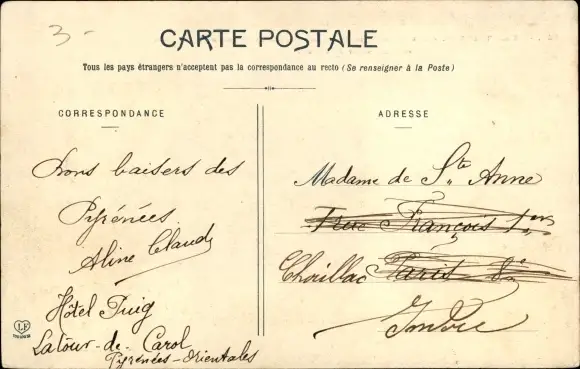 3-
CARTE POSTALE
Tous les pays étrangers n'acceptent pas la correspondance au recto (Se renseigner à la Poste)
CORRESPONDANCE
Bons baisers des
Pyrénées
Aline Claude
Hôtel Puig
Latour-de-Carol
Pyrénées-Orientales
LF
ADRESSE
Madame de Ste Anne
1 rue François 1er
Chaillac Paris 8e
Indre